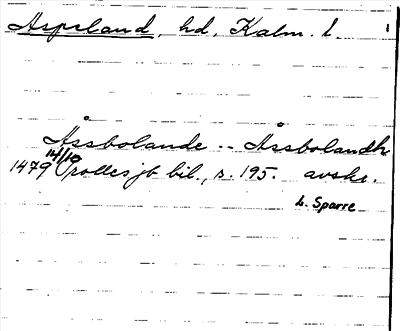 Aspeland, hd, Kalm. l.
Åssbolande -- Åssbolandh
1479 14/10 Trollesjb bil., s. 195. avskr.
L. Sparre